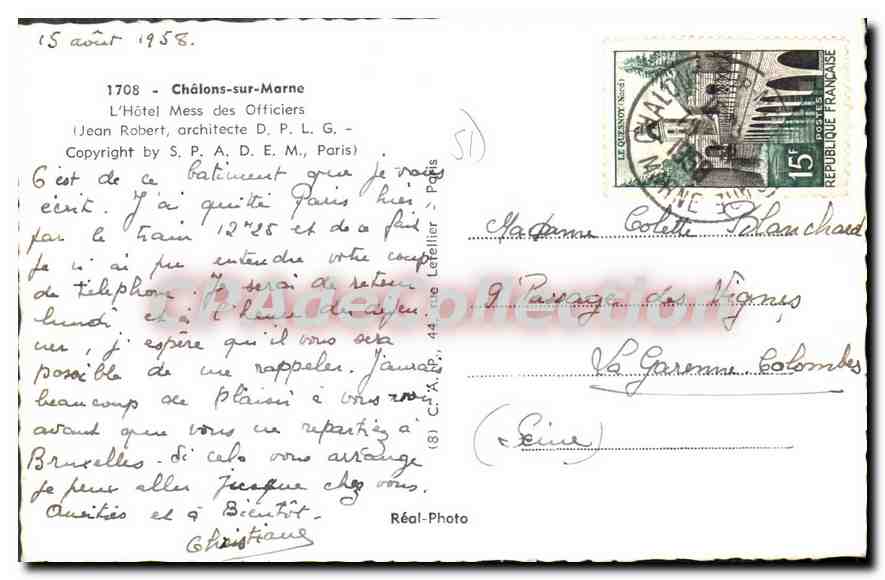 15 août 1958.
1708 - Châlons-sur-Marne
L'Hôtel Mess des Officiers
(Jean Robert, architecte D. P. L. G. -
Copyright by S. P. A. D. E. M., Paris)
C'est de ce batiment que je vous
écrit. J'ai quitté Paris hier,
par le train 12h28 et de ce fait
je n'ai pu entendre votre coup
de telephone. Je serai de retour
lundi et à l'heure du dejeu
ner, j'espère qu'il vous sera
possible de me rappeler. J'aurais
beaucoup de plaisir à vous voir
avant que vous ne repartiez à
Bruxelles. Si cela vous arrange
je peux aller jusque chez vous.
Amitiés et à Bientôt.
Christiane
(8) C. A. P., 44, rue Letellier, Paris
Réal-Photo
51)
LE QUESNOY (Nord)
15F
POSTES
REPUBLIQUE FRANÇAISE
MARNE
Madame Colette Blanchard
9 Passage des Vignes
La Garenne-Colombes
(Seine)
CPAdeCollection